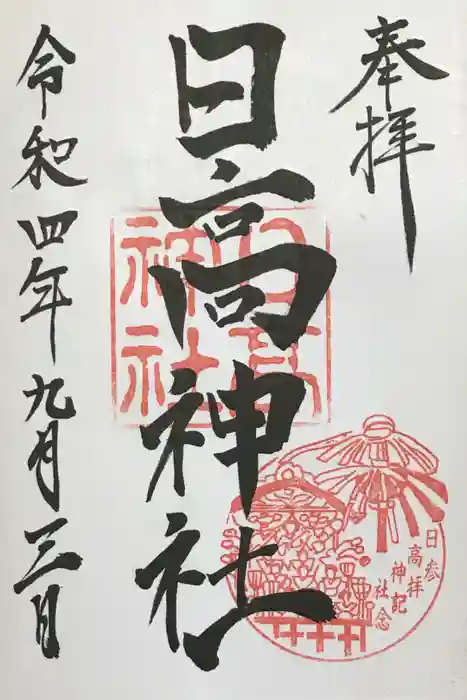 奉拝
日高神社
令和四年九月三日
日高
神社
参拝記念
日高神社